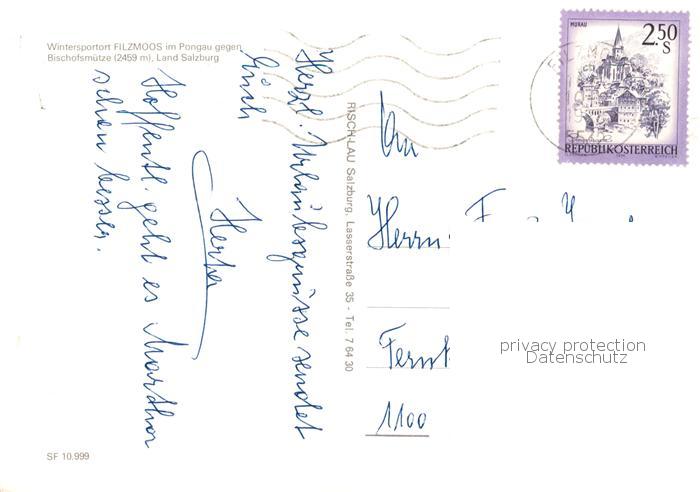 Wintersportort FILZMOOS im Pongau gegen
Bischofsmütze (2459 m), Land Salzburg
Herzl. Urlaubsgrüsse sendet
Euch
Herta
Hoffentl. geht es
schon besser.
RISCH-LAU Salzburg, Lasserstraße 35 - Tel. 7 64 30
MURAU
2.50
S
REPUBLIK ÖSTERREICH
An
Herrn
1100
privacy protection
Datenschutz
SF 10.999